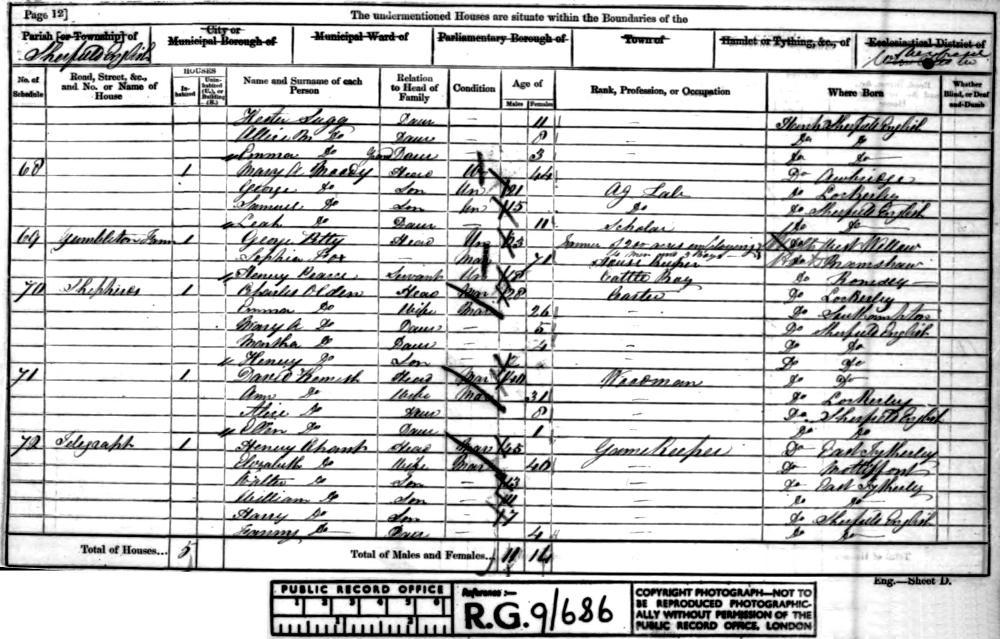 Page 12]
The undermentioned Houses are situate within the Boundaries of the
Parish [or Township] of
City or Municipal Borough of
Municipal Ward of
Parliamentary Borough of
Town of
Hamlet or Tything, &c., of
Ecclesiastical District of
Sherfield English
No. of Schedule
Road, Street, &c., and No. or Name of House
HOUSES
In-habited
Unin-habited (U.), or Building (B.)
Name and Surname of each Person
Relation to Head of Family
Condition
Age of
Males
Females
Rank, Profession, or Occupation
Where Born
Whether Blind, or Deaf-and-Dumb
Hester Sugg Daur — 11 — Hants Sherfield English
Do Daur — 8 — Do Do
Emma Do Grand Daur — 3 — Do Do
68 1 Mary A Moody Head Un 44 — Do Awbridge
George Do Son Un 21 Ag Lab Do Lockerley
Samuel Do Son Un 15 Do Do Sherfield English
Leah Do Daur — 11 Scholar Do Do
69 Gumbleton Farm 1 George Head Un 25 Farmer of 200 acres employing
6 men and 3 Boys
Sophia Fox 71 House Keeper Bramshaw
Henry Pearce Servant Un 18 Cattle Boy Do Romsey
70 1 Charles Olden Head Mar 28 Carter Do Lockerley
Emma Do Wife Mar 26 — Do Southampton
Mary A Do Daur — 5 — Do Sherfield English
Martha Do Daur — 4 — Do Do
Henry Do Son — 2 — Do Do
71 1 David Head Mar 40 Woodman Do Do
Ann Do Wife Mar 31 — Do Lockerley
Alice Do Daur 8 — Do Sherfield English
Ellen Do Daur 1 — Do Do
72 Telegraph 1 Henry Head Mar 45 Game Keeper Do East Tytherley
Elizabeth Do Wife Mar 40 — Do Mottisfont
Walter Do Son — 13 — Do East Tytherley
William Do Son — 11 — Do Do
Harry Do Son — 7 — Do Sherfield English
Fanny Do Daur — 4 — Do Do
Total of Houses... 5
Total of Males and Females... 11 16
Eng.—Sheet D.
PUBLIC RECORD OFFICE
1 2 3 4 5 6
Reference :—
R.G. 9/686
COPYRIGHT PHOTOGRAPH—NOT TO
BE REPRODUCED PHOTOGRAPHIC-
ALLY WITHOUT PERMISSION OF THE
PUBLIC RECORD OFFICE, LONDON